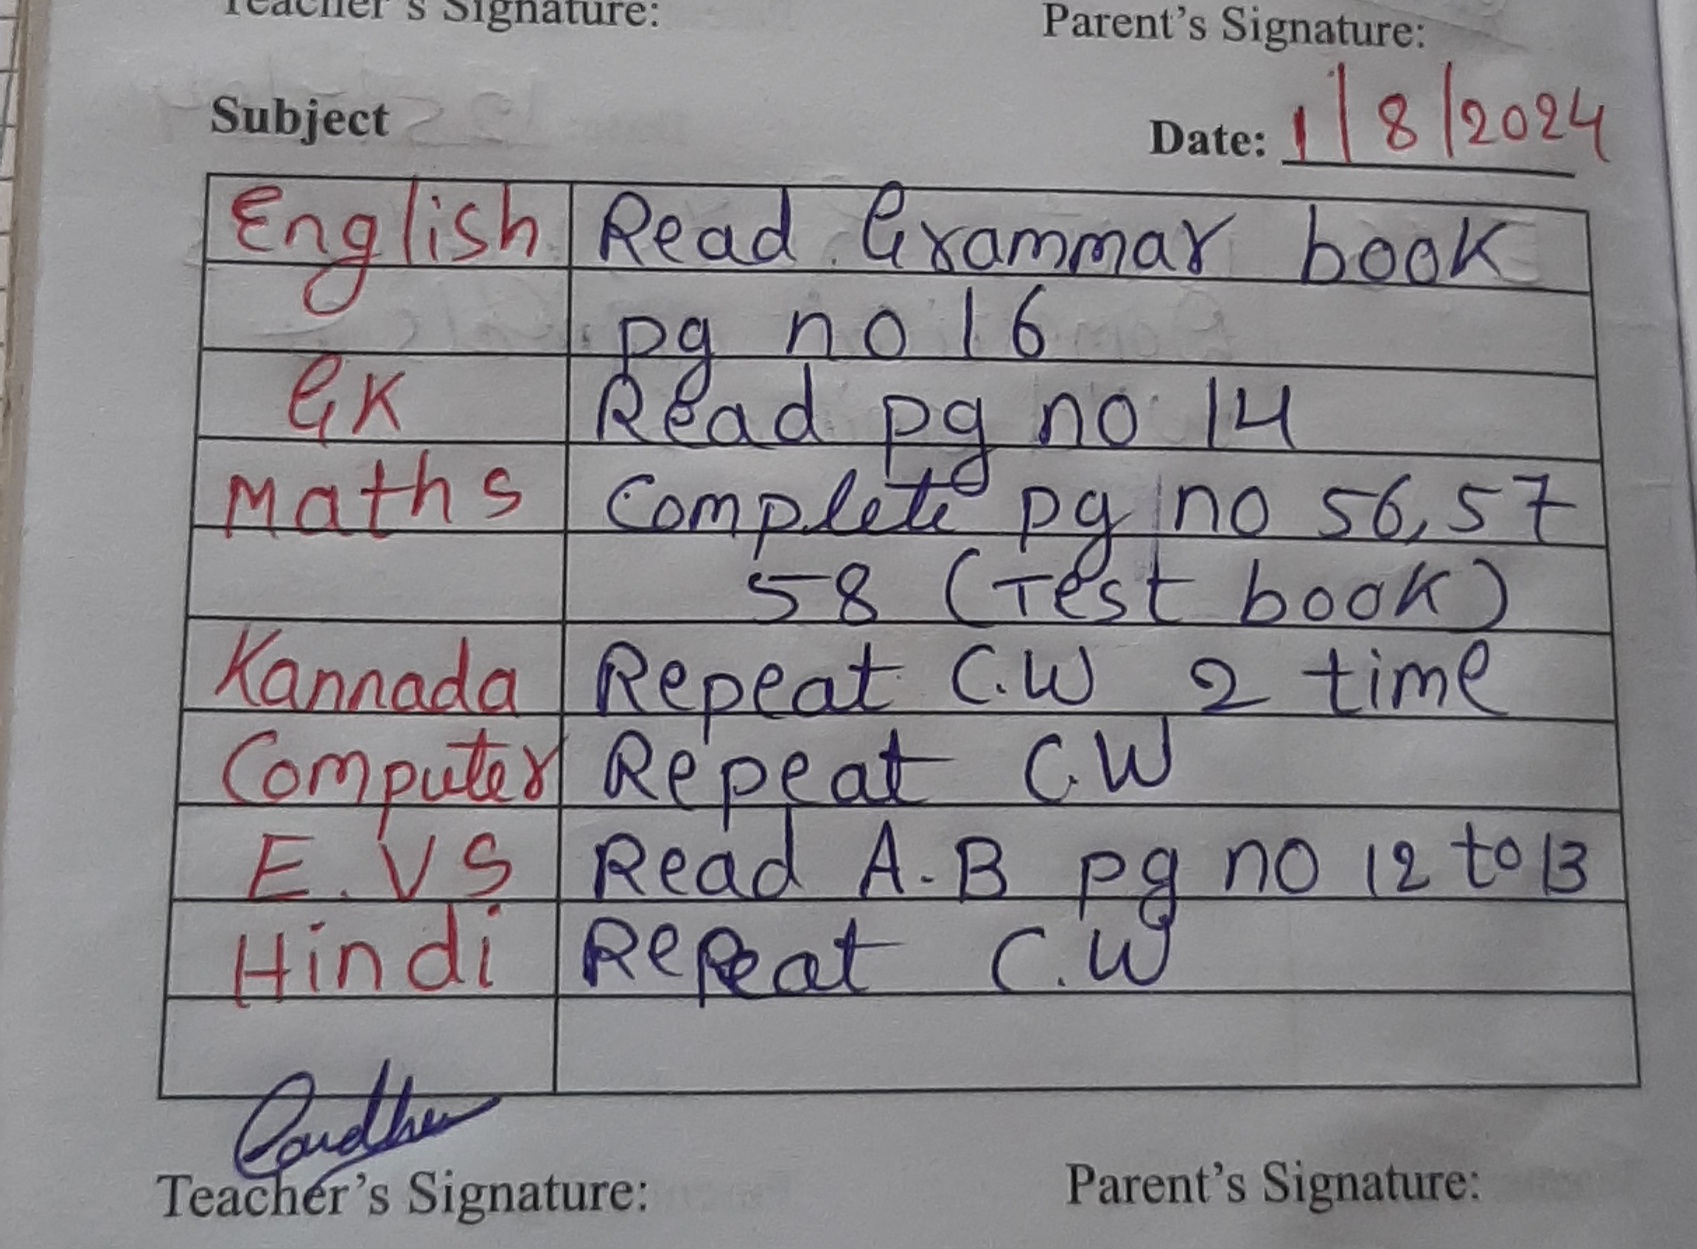 Teacher's Signature: Parent's Signature:
Subject Date: 1/8/2024
English Read Grammar book
pg no 16
GK Read pg no 14
Maths Complete pg no 56, 57
58 (Test book)
Kannada Repeat C.W 2 time
Computer Repeat C.W
E.VS Read A.B pg no 12 to 13
Hindi Repeat C.W
Teacher's Signature: Parent's Signature: